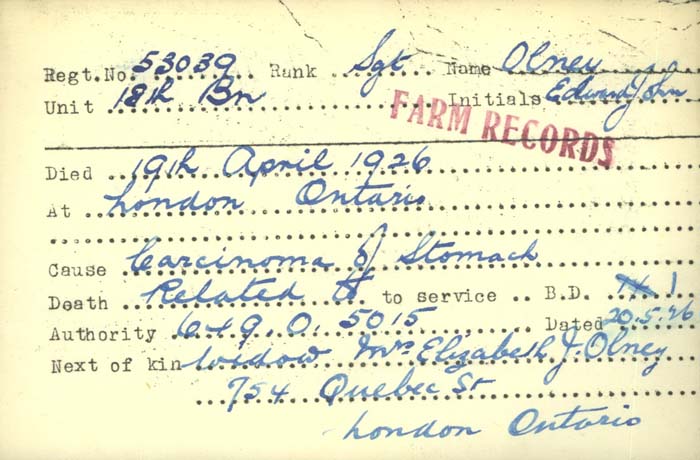 Regt.No. 53039 Rank Sgt Name Olney
Unit 18th Bn Initials Edward John
FARM RECORDS
Died 19th April 1926
At London Ontario
Cause Carcinoma of Stomach
Death Related to to service B.D. 1
Authority 649.O.5015 Dated 20.5.26
Next of kin Widow Mrs Elizabeth J. Olney
754 Quebec St
London Ontario